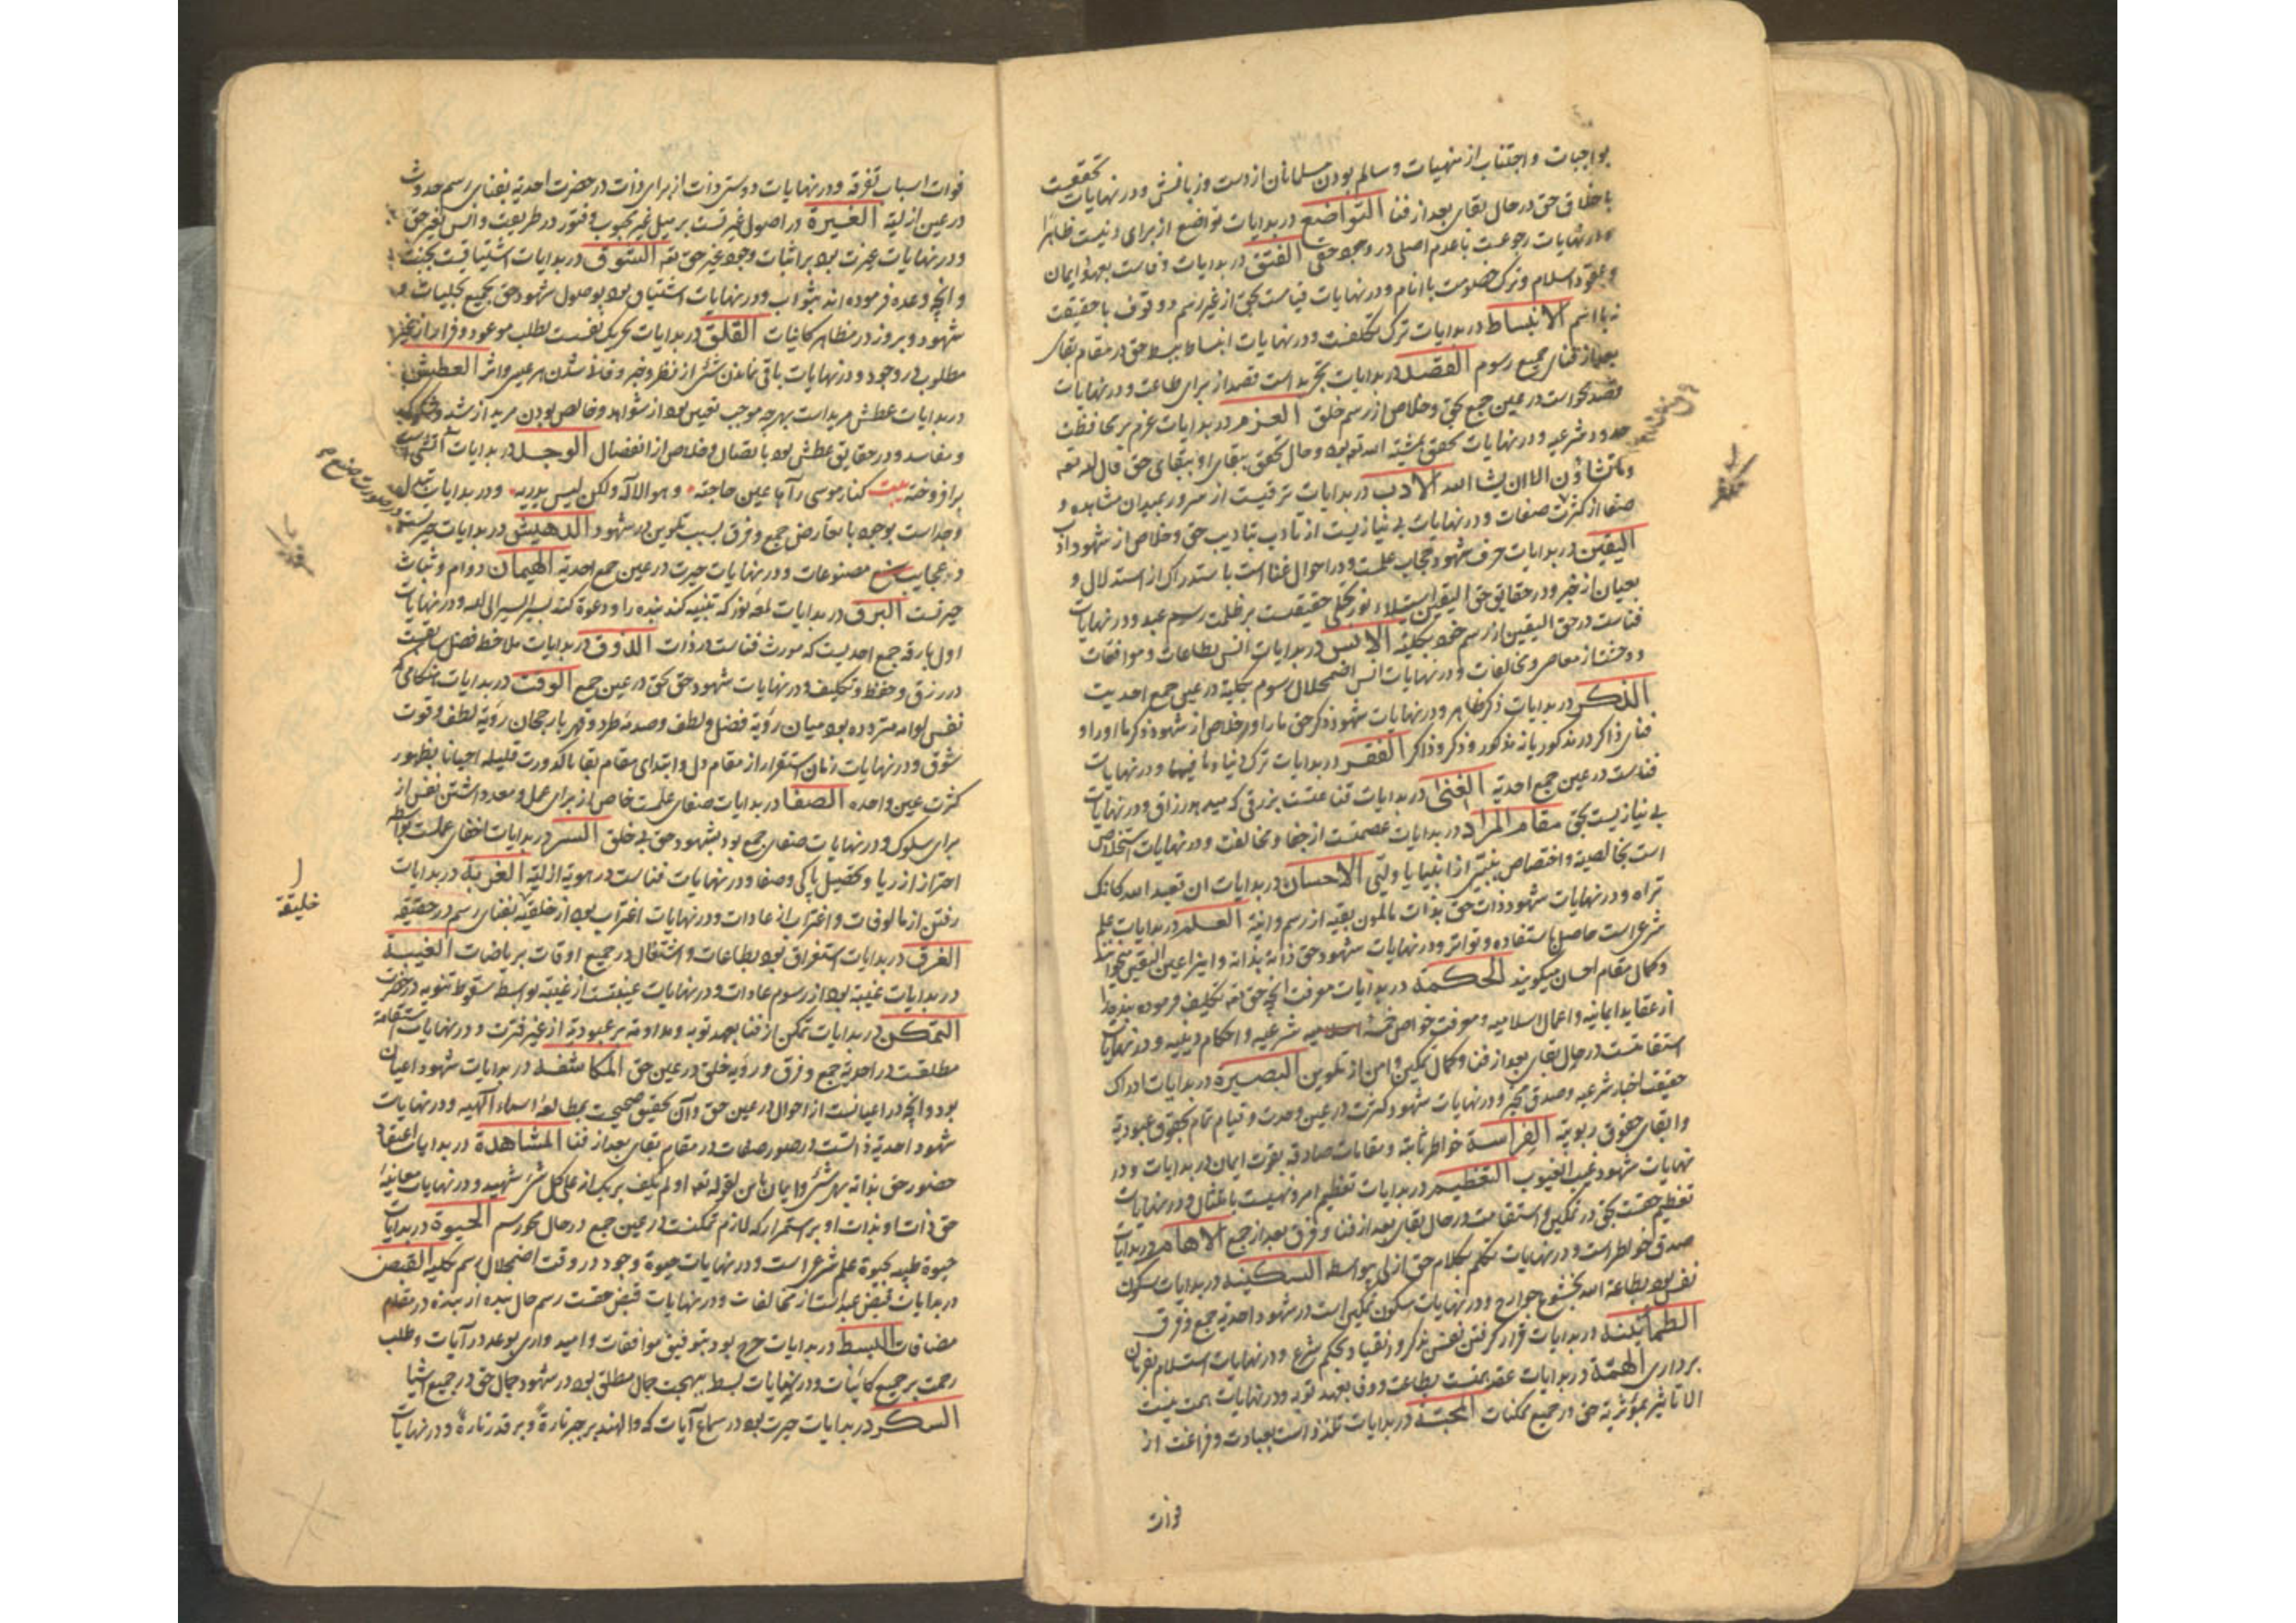 بواجبات و اجتناب از منهیات و سالم بودن مسلمانان از دست و زبانش و در نهایات تحققست
باخلاق حق در حال بقای بعد از فنا التواضع در بدایات تواضع از برای دینست ظاهرًا
و در نهایات رجوعست با عدم اصلی در وجود حقی الفتق در بدایات وفاست بعهود ایمان
و عقود اسلام و ترک خصومت با انام و در نهایات قیامست بحق از غیر اسم و وقوف با حقیقت
نه با اسم الانبساط در بدایات ترک تکلفست و در نهایات انبساط ببسط حق در مقام بقای
بعد از فنای جمیع رسوم القصد در بدایات تجرید است قصد از برای طاعت و در نهایات
قصد محو است در عین جمع بحق و خلاص از رسم خلق العزم در بدایات عزم بر محافظت
حدود شرعیه و در نهایات تحقق بمشیة الله تع بود و حال تحقق ببقای او ببقای حق قال الله تعه
و ما تشاؤن الا ان یشا الله الادب در بدایات ترقیست از مرور بمیدان مشاهده و
صفا از کثرت صفات و در نهایات بی نیازیست از تادب بتادیب حق و خلاص از شهود ادب
الیقین در بدایات حرف شهود حجاب علمست و در احوال غنا است با ستدراک از استدلال و
بعیان از خبر و در حقایق حق الیقین استیلاء نور تجلی حقیقیست بر ظلمت رسم عبد و در نهایات
فناست در حق الیقین از رسم خود بکلیة الانس در بدایات انس بطاعات و موافقات
و وحشت از معاصی و مخالفات و در نهایات انس اضمحلال رسوم بکلیة در عین جمع احدیت
الذکر در بدایات ذکر ظاهر و در نهایات شهود ذکر حق ما را و خلاص از شهود ذکر ما او را و
فنای ذاکر در مذکور یا نه مذکور و ذکر و ذاکر الفقر در بدایات ترک دنیا و ما فیها و در نهایات
فناست در عین جمع احدیة الغنا در بدایات قناعتست بزرقی که میدهد رزاق و در نهایات
بی نیازیست بحق مقام المراد در بدایات عصمتست از جفا و مخالفت و در نهایات استخلاص
است بخالصیة و اختصاص بنبیی از انبیا یا ولیی الاحسان در بدایات ان تعبد الله کانک
تراه و در نهایات شهود ذات حق بذات بالمون بقیه از رسم و انیة العلم در بدایات علم
شرعی است حاصل باستفاده و تواتر و در نهایات شهود حق ذاته بذاته و اینرا عین الیقین میخوانند
و کمال مقام احسان میگویند الحکمة در بدایات معرفت آنچه حق تعه تکلیف فرموده بنده را
از عقاید ایمانیه و اعمال اسلامیه و معرفت خواص خمسه اسلامیه شرعیه و احکام دینیه و در نهایات
استقامتست در حال بقای بعد از فنا و کمال تمکین و امن از تلوین البصیرة در بدایات ادراک
حقیقت اخبار شرعیه و صدق مخبر و در نهایات شهود کثرت در عین وحدت و قیام تمام بحقوق عبودیة
و ابقای حقوق ربوبیة الفراسة خواطر ثابته و مقامات صادقه بقوت ایمان در بدایات و در
نهایات شهود غیب الغیوب التعظیم در بدایات تعظیم امر و نهیست بامتثال و در نهایات
تعظیم حقست بحق در تمکین و استقامت در حال بقای بعد از فنا و فرق بعد از جمع الالهام در بدایات
صدق خواطر است و در نهایات تکلم بکلام حق ازلی بی واسطه السکینة در بدایات سکون
نفس بود بطاعة الله بخشوع جوارح و در نهایات سکون تمکین است در شهود احدیة جمع و فرق
الطمانینة در بدایات قرار گرفتن نفس بذکر و انقیاد بحکم شرع و در نهایات استسلام بفرمان
برداری الهمة در بدایات عقد همتست بطاعت و وفا بعهد توبه و در نهایات همت نیست
الا تاثیر بمؤثریة حق در جمیع ممکنات المحبة در بدایات تلذذ است بعبادت و فراغت از
فوات
فوات اسباب تفرقه و در نهایات دوستی ذات از برای ذات در حضرت احدیة بفنای رسم حدوث
در عین ازلیة الغیرة در اصول غیرتست بر میل غیر محبوب و فتور در طریقت و انس بغیر حق
و در نهایات غیرت بود بر اثبات وجود غیر حق تعه الشوق در بدایات اشتیاقیت بجنت
و آنچه وعده فرموده اند بثواب و در نهایات اشتیاق بود بوصول شهود حق بجمیع تجلیات و
شهود و بروز در مظاهر کاینات القلق در بدایات تحریک نفسست بطلب موعود و فرار از غیر
مطلوب در وجود و در نهایات باقی نماندن شئی از نظر و خبر و فانی شدن هر عین و اثر العطش
در بدایات عطش مرید است بهرچه موجب تعیین بود از شواهد و خالص بودن مرید از شبه و شکوک
و مفاسد و در حقایق عطش بود باتصال و خلاص از انفصال الوجد در بدایات آتشی است
برافروخته بیت کنار موسی رآها عین حاجته و هو الاله ولکن لیس یدریه و در بدایات تبدل
وجد است بوجود با تعارض جمع و فرق بسبب تلوین در شهود الدهش در بدایات حیرتست
در عجایب صنع مصنوعات و در نهایات حیرت در عین جمع احدیة الهیمان دوام و ثبات
حیرتست البرق در بدایات لمعه نور که تنبیه کند بنده را و دعوة کند بسیر السیر الی الله و در نهایات
اول بارقه جمع احدیست که مورث فناست در ذات الذوق در بدایات ملاحظ فضل سابقست
در رزق و حفظ و تکلیف و در نهایات شهود حق بحق در عین جمع الوقت در بدایات هنگامی
نفس لوامه متردده بود میان رؤیة فضل و لطف و صدمه طرد و قهر با رجحان رؤیة لطف و قوت
شوق و در نهایات زمان استقرار از مقام دل و ابتدای مقام بقا با کدورت قلیله احیانا بظهور
کثرت عین واحده الصفا در بدایات صفای علمست خاص از برای عمل و معد داشتن نفس از
برای سلوک و در نهایات صفای جمع بود بشهود حق بی خلق السر در بدایات اخفای عملست بواسطه
احتراز از ریا و تحصیل پاکی و صفا و در نهایات فناست در هویة ازلیة الغربة در بدایات
رفتن از مالوفات و اغتراب از عادات و در نهایات اغتراب بود از خلقیة بفنای رسم در حقیقه
الغرق در بدایات استغراق بود بطاعات و اشتغال در جمیع اوقات بریاضات الغیبة
در بدایات غیبة بود از رسوم عادات و در نهایات غیبتست از غیبة بواسطه سقوط تنویه در حضرت
التمکن در بدایات تمکن از فنا بعهد توبه و مداومة بر عبودیة از غیر فترت و در نهایات استقامة
مطلقست در احدیة جمع و فرق و رؤیه خلق در عین حق المکاشفة در بدایات شهود اعیان
بود و آنچه در اعیانست از احوال در عین حق و آن تحقیق صحیحست بمطالعه اسماء الهیه و در نهایات
شهود احدیة ذاتست در صور صفات در مقام بقای بعد از فنا المشاهدة در بدایات اعتقاد
حضور حق بذاته بهر شئ و ایمان باین لقوله تعه او لم یکف بربک انه علی کل شئ شهید و در نهایات معاینه
حق ذات او بذات او بر استمرار که لازم تمکنست در عین جمع در حال محو رسم الحیوة در بدایات
حیوة طیبه بحیوة علم شرعی است و در نهایات حیوة وجود در وقت اضمحلال رسم بکلیه القبض
در بدایات قبض عبد است از مخالفات و در نهایات قبض حقست رسم حال بنده از بنده در مقام
مضافات البسط در بدایات فرح بود بتوفیق موافقات و امیدواری بوعد در آیات و طلب
رحمت بر جمیع کاینات و در نهایات بسط ببهجت جمال مطلق بود در شهود جمال حق در جمیع اشیا
السکر در بدایات حیرت بود در سماع آیات که والهند بر جبر تارة و بر قدر تارة و در نهایات
در صورت صنع م
خلیقة